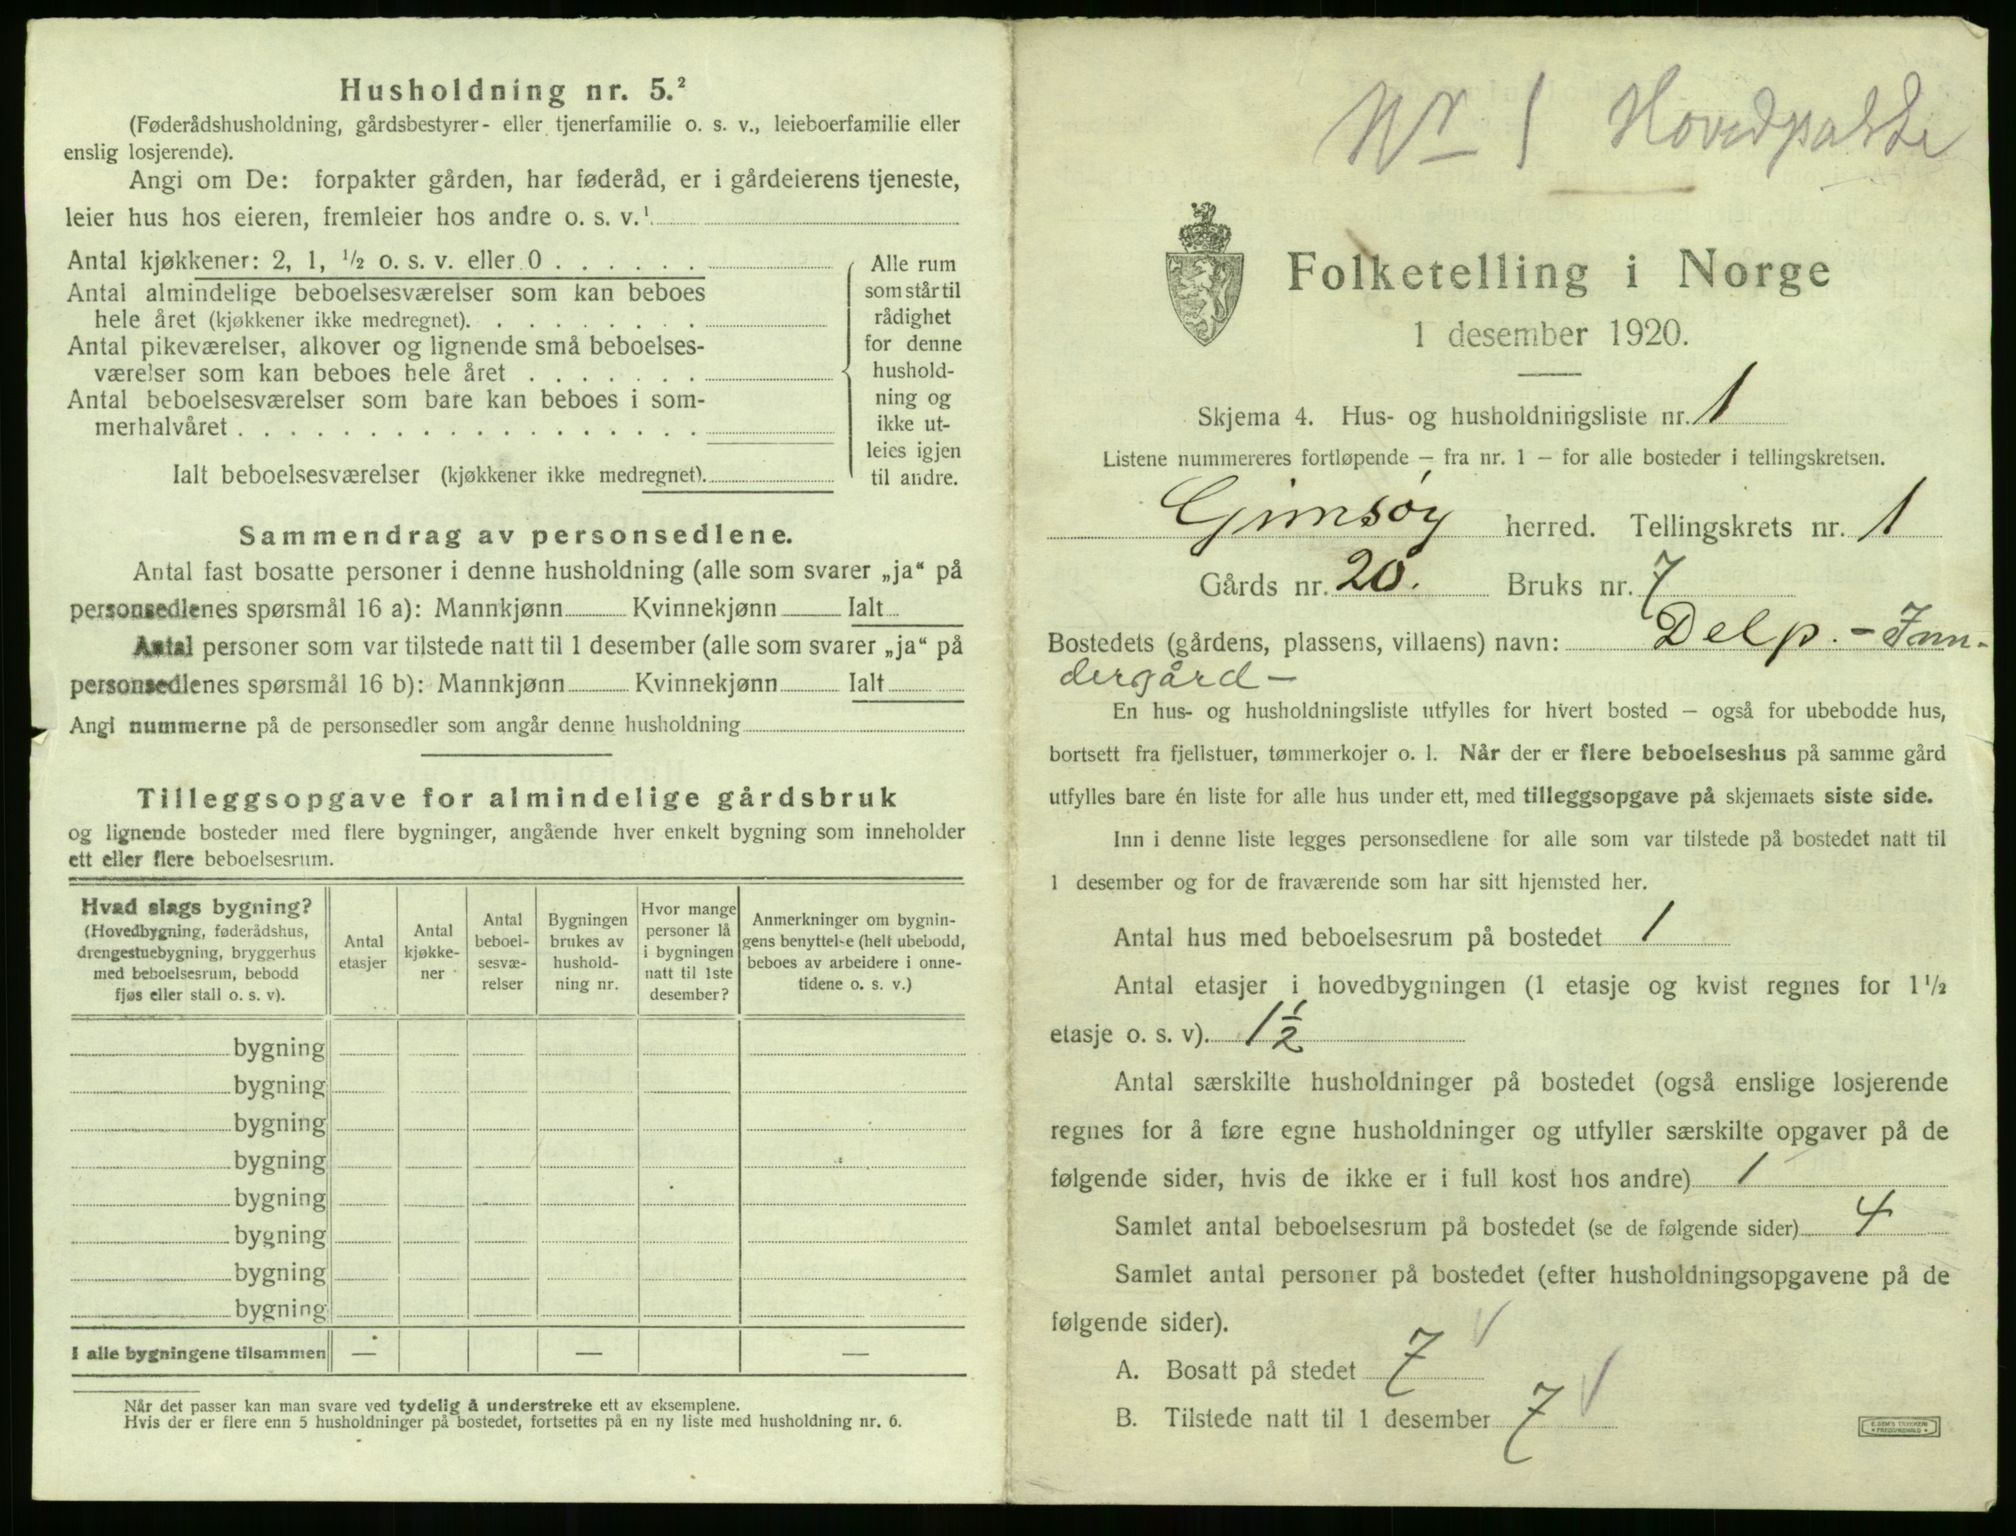 Husholdning nr. 5.²
(Føderådshusholdning, gårdsbestyrer- eller tjenerfamilie o. s. v., leieboerfamilie eller
enslig losjerende).
Angi om De: forpakter gården, har føderåd, er i gårdeierens tjeneste,
leier hus hos eieren, fremleier hos andre o. s. v.¹
Antal kjøkkener: 2, 1, ½ o. s. v. eller 0 . . . . . .
Antal almindelige beboelsesværelser som kan beboes
hele året (kjøkkener ikke medregnet). . . . . . . . .
Antal pikeværelser, alkover og lignende små beboelses-
værelser som kan beboes hele året . . . . . . .
Antal beboelsesværelser som bare kan beboes i som-
merhalvåret . . . . . . . . . . . . . . . . . .
Ialt beboelsesværelser (kjøkkener ikke medregnet).
Alle rum
som står til
rådighet
for denne
hushold-
ning og
ikke ut-
leies igjen
til andre.
Sammendrag av personsedlene.
Antal fast bosatte personer i denne husholdning (alle som svarer „ja“ på
personsedlenes spørsmål 16 a): Mannkjønn Kvinnekjønn Ialt
Antal personer som var tilstede natt til 1 desember (alle som svarer „ja“ på
personsedlenes spørsmål 16 b): Mannkjønn Kvinnekjønn Ialt
Angi nummerne på de personsedler som angår denne husholdning
Tilleggsopgave for almindelige gårdsbruk
og lignende bosteder med flere bygninger, angående hver enkelt bygning som inneholder
ett eller flere beboelsesrum.
Hvad slags bygning?
(Hovedbygning, føderådshus,
drengestuebygning, bryggerhus
med beboelsesrum, bebodd
fjøs eller stall o. s. v).
Antal
etasjer
Antal
kjøkke-
ner
Antal
beboel-
sesvæ-
relser
Bygningen
brukes av
hushold-
ning nr.
Hvor mange
personer lå
i bygningen
natt til 1ste
desember?
Anmerkninger om bygnin-
gens benyttelse (helt ubebodd,
beboes av arbeidere i onne-
tidene o. s. v.)
bygning
bygning
bygning
bygning
bygning
bygning
bygning
bygning
I alle bygningene tilsammen — — —
Når det passer kan man svare ved tydelig å understreke ett av eksemplene.
Hvis der er flere enn 5 husholdninger på bostedet, fortsettes på en ny liste med husholdning nr. 6.
Nr 1 Hovedpakke
Folketelling i Norge
1 desember 1920.
Skjema 4. Hus- og husholdningsliste nr. 1
Listene nummereres fortløpende — fra nr. 1 — for alle bosteder i tellingskretsen.
Gimsøy herred. Tellingskrets nr. 1
Gårds nr. 20. Bruks nr. 7
Bostedets (gårdens, plassens, villaens) navn: Delp. - Inn-
dergård -
En hus- og husholdningsliste utfylles for hvert bosted — også for ubebodde hus,
bortsett fra fjellstuer, tømmerkojer o. l. Når der er flere beboelseshus på samme gård
utfylles bare én liste for alle hus under ett, med tilleggsopgave på skjemaets siste side.
Inn i denne liste legges personsedlene for alle som var tilstede på bostedet natt til
1 desember og for de fraværende som har sitt hjemsted her.
Antal hus med beboelsesrum på bostedet 1
Antal etasjer i hovedbygningen (1 etasje og kvist regnes for 1½
etasje o. s. v). 1½
Antal særskilte husholdninger på bostedet (også enslige losjerende
regnes for å føre egne husholdninger og utfyller særskilte opgaver på de
følgende sider, hvis de ikke er i full kost hos andre) 1
Samlet antal beboelsesrum på bostedet (se de følgende sider) 4
Samlet antal personer på bostedet (efter husholdningsopgavene på de
følgende sider).
A. Bosatt på stedet 7
B. Tilstede natt til 1 desember 7